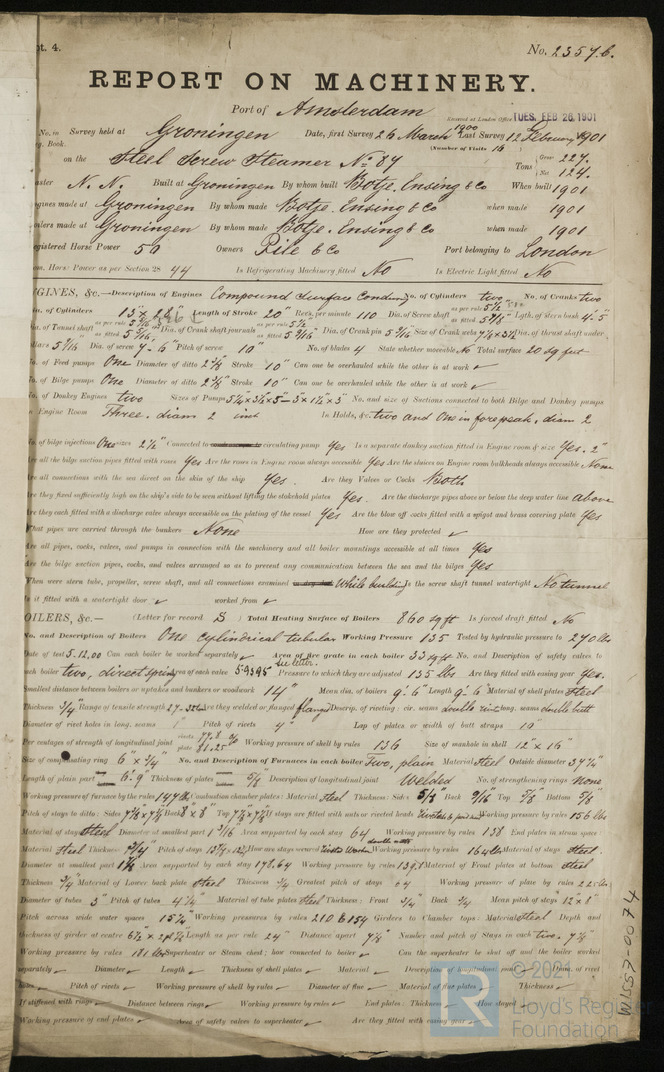 pt. 4. No. 2357 b.
REPORT ON MACHINERY.
Port of Amsterdam
Received at London Office TUES. FEB 26. 1901
No. in Survey held at Groningen Date, first Survey 26 March 1900 Last Survey 12 February 1901
Book. (Number of Visits 16)
on the Steel Screw Steamer No 84 Tons Gross 227. Net 124.
Master N. N. Built at Groningen By whom built Botje, Ensing & Co When built 1901
Engines made at Groningen By whom made Botje. Ensing & Co when made 1901
Boilers made at Groningen By whom made Botje. Ensing & Co when made 1901
Registered Horse Power 50 Owners Pile & Co Port belonging to London
Nom. Horse Power as per Section 28 44 Is Refrigerating Machinery fitted No Is Electric Light fitted No
ENGINES, &c.—Description of Engines Compound Surface Condens No. of Cylinders two No. of Cranks two
Dia. of Cylinders 13" × Length of Stroke 20" Revs. per minute 110 Dia. of Screw shaft as per rule as fitted Lgth. of Stern bush 4'.5"
Dia. of Tunnel shaft as per rule as fitted Dia. of Crank shaft journals as per rule 5½ as fitted Dia. of Crank pin Size of Crank webs Dia. of thrust shaft under
collars Dia. of screw 7'-6" Pitch of screw 10' No. of blades 4 State whether moveable No Total surface 20 sq feet
No. of Feed pumps One Diameter of ditto 2⅜" Stroke 10" Can one be overhauled while the other is at work ✓
No. of Bilge pumps One Diameter of ditto 2⅜" Stroke 10" Can one be overhauled while the other is at work ✓
No. of Donkey Engines two Sizes of Pumps No. and size of Suctions connected to both Bilge and Donkey pumps
In Engine Room Three. diam 2 inch In Holds, &c. two and One in forepeak, diam 2
No. of bilge injections One sizes 2½" Connected to circulating pump Yes Is a separate donkey suction fitted in Engine room & size Yes. 2"
Are all the bilge suction pipes fitted with roses Yes Are the roses in Engine room always accessible Yes Are the sluices on Engine room bulkheads always accessible None
Are all connections with the sea direct on the skin of the ship Yes. Are they Valves or Cocks Both
Are they fixed sufficiently high on the ship's side to be seen without lifting the stokehold plates Yes. Are the discharge pipes above or below the deep water line above
Are they each fitted with a discharge valve always accessible on the plating of the vessel Yes Are the blow off cocks fitted with a spigot and brass covering plate Yes
What pipes are carried through the bunkers None How are they protected ✓
Are all pipes, cocks, valves, and pumps in connection with the machinery and all boiler mountings accessible at all times Yes
Are the bilge suction pipes, cocks, and valves arranged so as to prevent any communication between the sea and the bilges Yes
When were stern tube, propeller, screw shaft, and all connections examined While building Is the screw shaft tunnel watertight No tunnel
Is it fitted with a watertight door ✓ worked from ✓
BOILERS, &c.— (Letter for record S) Total Heating Surface of Boilers 860 sq ft Is forced draft fitted No
No. and Description of Boilers One cylindrical tubular Working Pressure 135 Tested by hydraulic pressure to 270 lbs
Date of test 5.12.00 Can each boiler be worked separately ✓ Area of fire grate in each boiler 33 sq ft No. and Description of safety valves to
each boiler two, direct spring Area of each valve 5.9395 see letter. Pressure to which they are adjusted 135 lbs Are they fitted with easing gear Yes.
Smallest distance between boilers or uptakes and bunkers or woodwork 14" Mean dia. of boilers 9'.6" Length 9'.6" Material of shell plates Steel
Thickness ¾ Range of tensile strength 27-32 tons Are they welded or flanged flanged Descrip. of riveting: cir. seams double rivet long. seams double butt
Diameter of rivet holes in long. seams 1" Pitch of rivets 4" Lap of plates or width of butt straps 10"
Per centages of strength of longitudinal joint rivets 77.8 % plate 81.25 Working pressure of shell by rules 136 Size of manhole in shell 12" × 16"
Size of compensating ring 6" × ¾" No. and Description of Furnaces in each boiler Two, plain Material Steel Outside diameter
Length of plain part 6'.9" Thickness of plates ⅝ Description of longitudinal joint Welded No. of strengthening rings None
Working pressure of furnace by the rules 147 lbs Combustion chamber plates: Material Steel Thickness: Sides ⅝" Back 9/16" Top ⅝" Bottom ⅝"
Pitch of stays to ditto: Sides Back 8" × 8" Top If stays are fitted with nuts or riveted heads Working pressure by rules 156 lbs
Material of stays Steel Diameter at smallest part 1 3/16 Area supported by each stay 64 Working pressure by rules 138 End plates in steam space:
Material Steel Thickness ¾" Pitch of stays How are stays secured double nuts Working pressure by rules 164 lbs Material of stays Steel.
Diameter at smallest part Area supported by each stay 178.64 Working pressure by rules Material of Front plates at bottom Steel
Thickness ¾" Material of Lower back plate Steel Thickness ¾ Greatest pitch of stays 64 Working pressure of plate by rules
Diameter of tubes 3" Pitch of tubes Material of tube plates Steel Thickness: Front ¾" Back ¾ Mean pitch of stays 12" × 8"
Pitch across wide water spaces Working pressures by rules 210 & 154 Girders to Chamber tops: Material Steel Depth and
thickness of girder at centre Length as per rule 24" Distance apart 7½" Number and pitch of Stays in each two. 7½"
Working pressure by rules 181 lbs Superheater or Steam chest; how connected to boiler ✓ Can the superheater be shut off and the boiler worked
separately ✓ Diameter ✓ Length ✓ Thickness of shell plates ✓ Material ✓ Description of longitudinal joint ✓ Diam. of rivet
holes ✓ Pitch of rivets ✓ Working pressure of shell by rules ✓ Diameter of flue ✓ Material of flue plates ✓ Thickness ✓
If stiffened with rings ✓ Distance between rings ✓ Working pressure by rules ✓ End plates: Thickness ✓ How stayed ✓
Working pressure of end plates ✓ Area of safety valves to superheater ✓ Are they fitted with easing gear ✓
W1557-0074
© 2021
Lloyd's Register
Foundation
LR